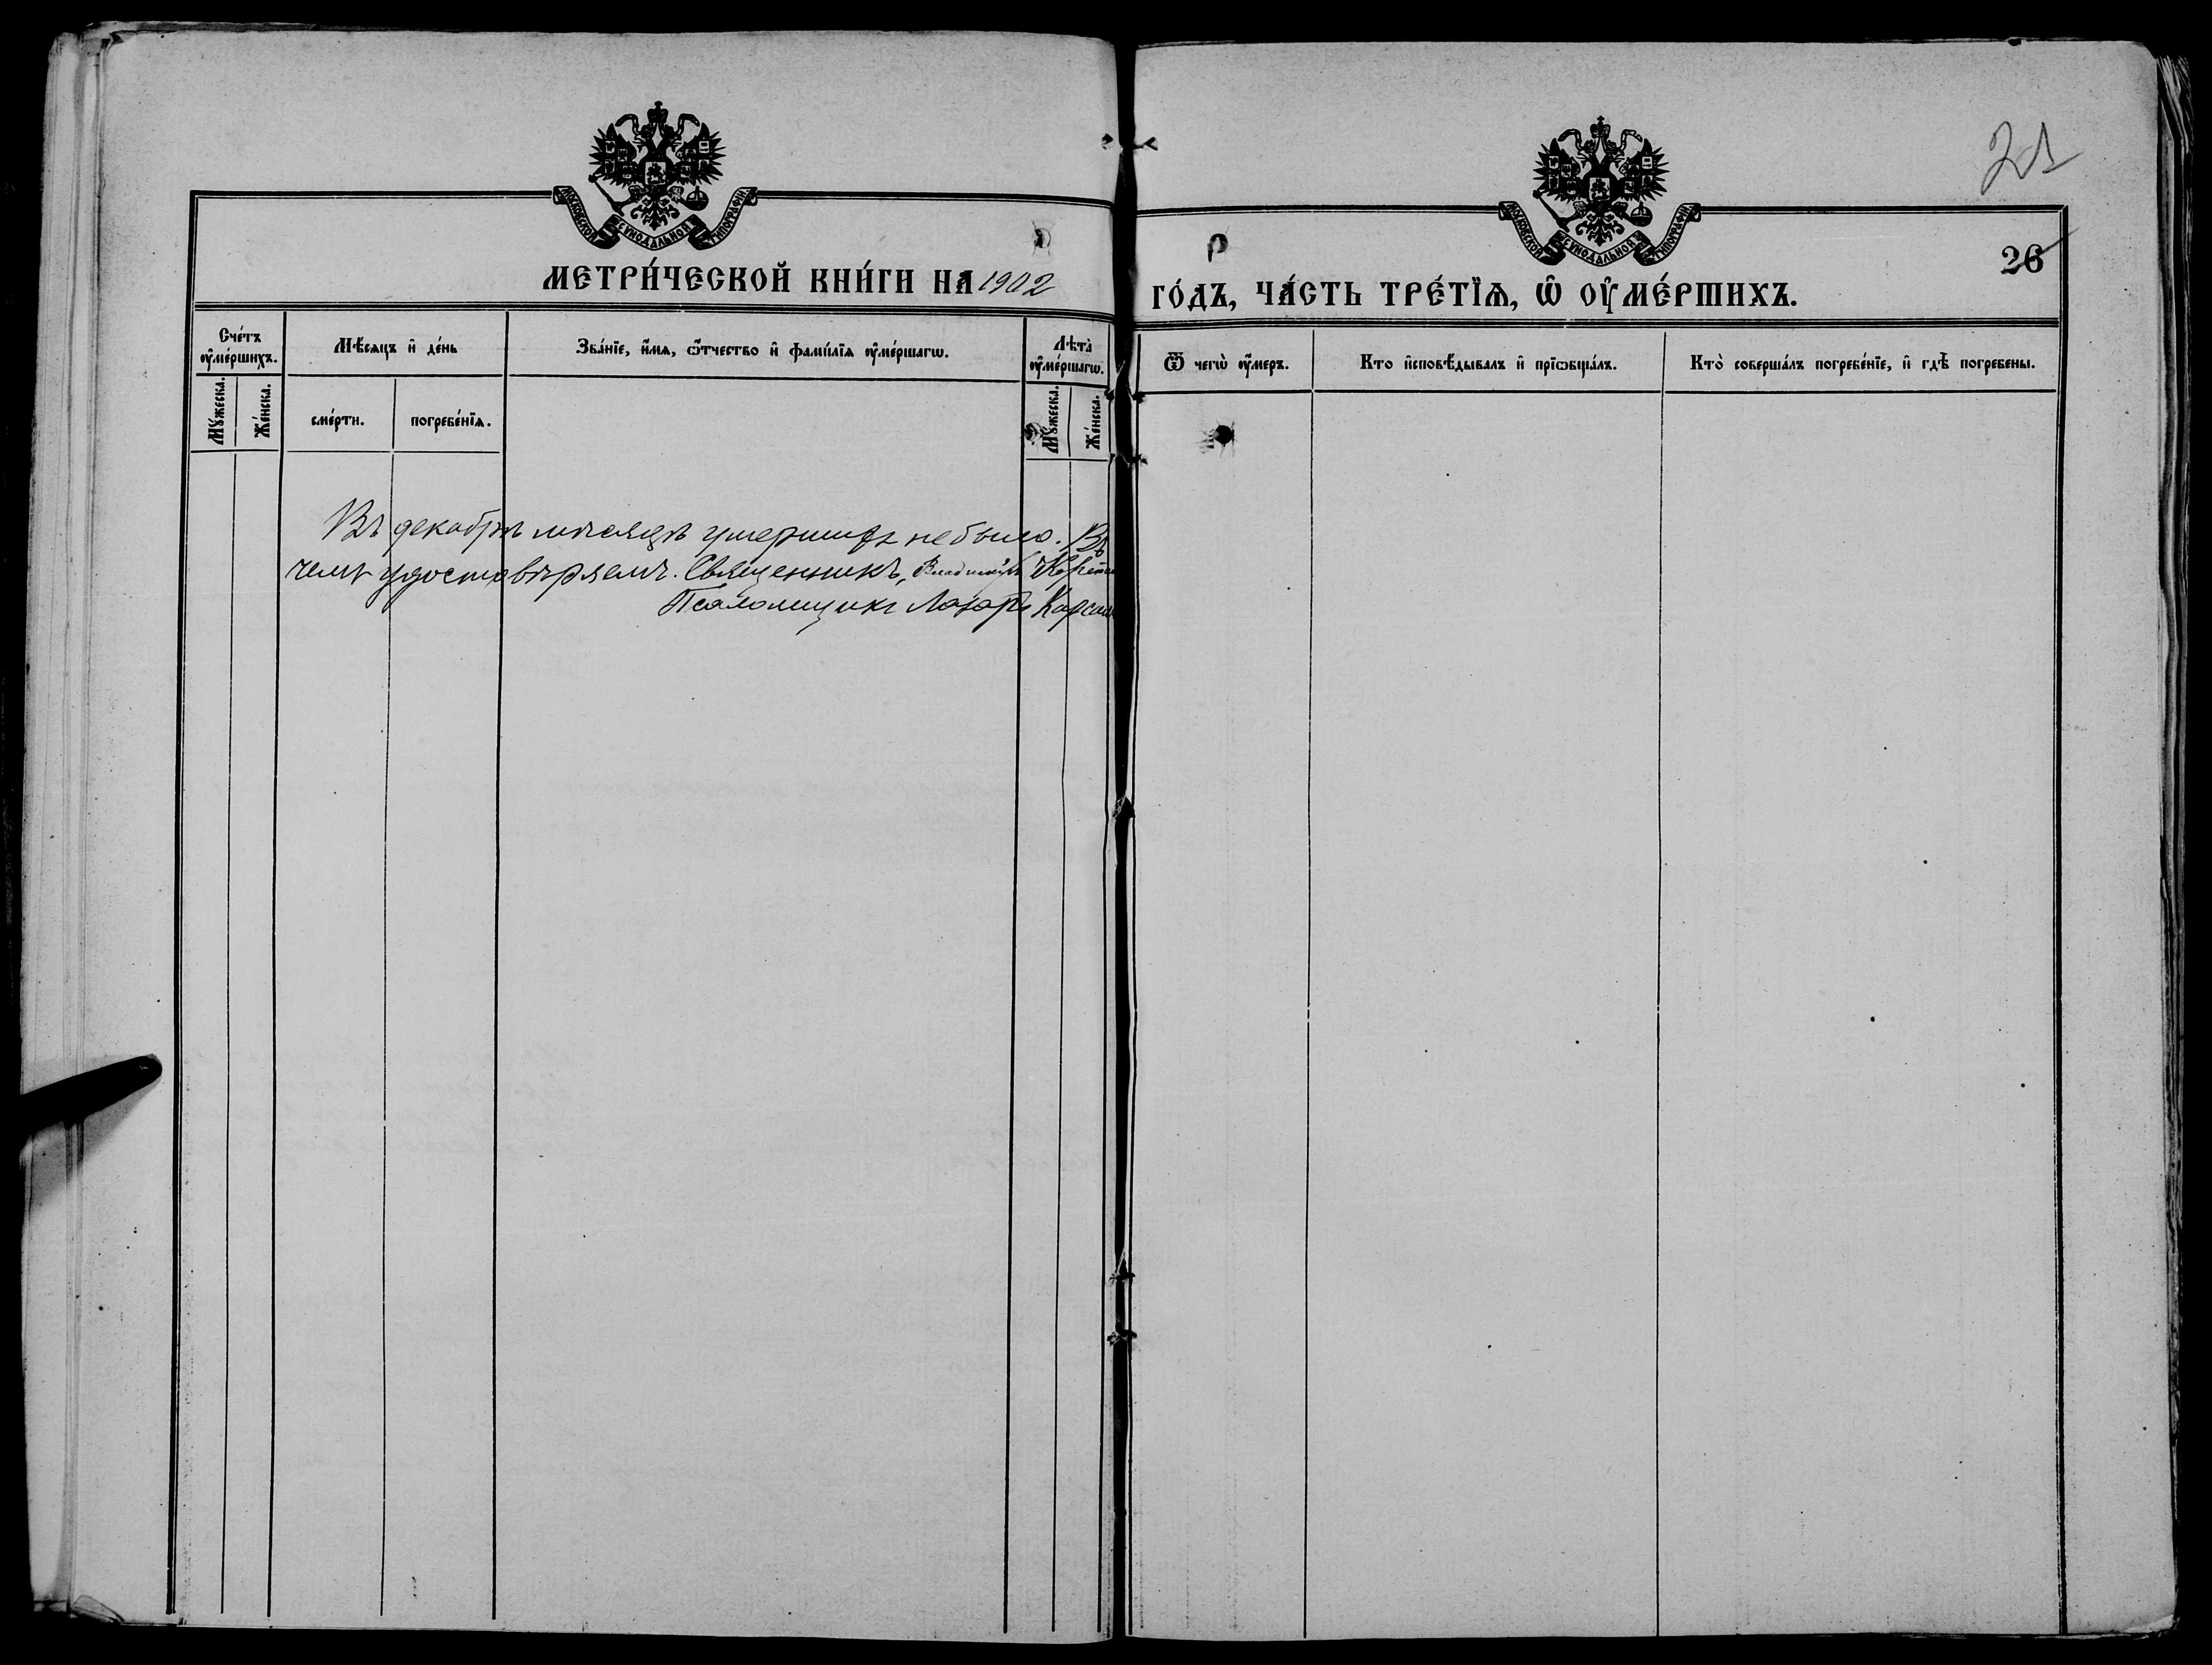 21
МОСКОВСКОЙ СѴНОДАЛЬНОЙ ТИПОГРАФІИ
МОСКОВСКОЙ СѴНОДАЛЬНОЙ ТИПОГРАФІИ
26
МЕТРИ́ЧЕСКОЙ КНИ́ГИ НА 1902
ГО́ДЪ, ЧА́СТЬ ТРЕ́ТЇѦ, Ѿ ОУ҆МЕ́РШИХЪ.
Сче́тъ оу҆ме́ршихъ.
Мꙋ́жеска.
Же́нска.
Мѣ́сяцъ и҆ де́нь
сме́рти.
погребе́нїѧ.
Зва́нїе, и҆́мѧ, ѻ҆́тчество и҆ фами́лїѧ оу҆ме́ршагѡ.
Лѣ́та оу҆ме́ршагѡ.
Мꙋ́жеска.
Же́нска.
Ѿ чегѡ̀ оу҆́меръ.
Кто и҆сповѣ́дывалъ и҆ прїѡбща́лъ.
Кто̀ соверша́лъ погребе́нїе, и҆ гдѣ̀ погребены.
Въ декабрѣ мѣсяцѣ умершихъ не было. Въ
чемъ удостовѣряемъ. Священникъ, Владиміръ
Псаломщикъ Лазарь